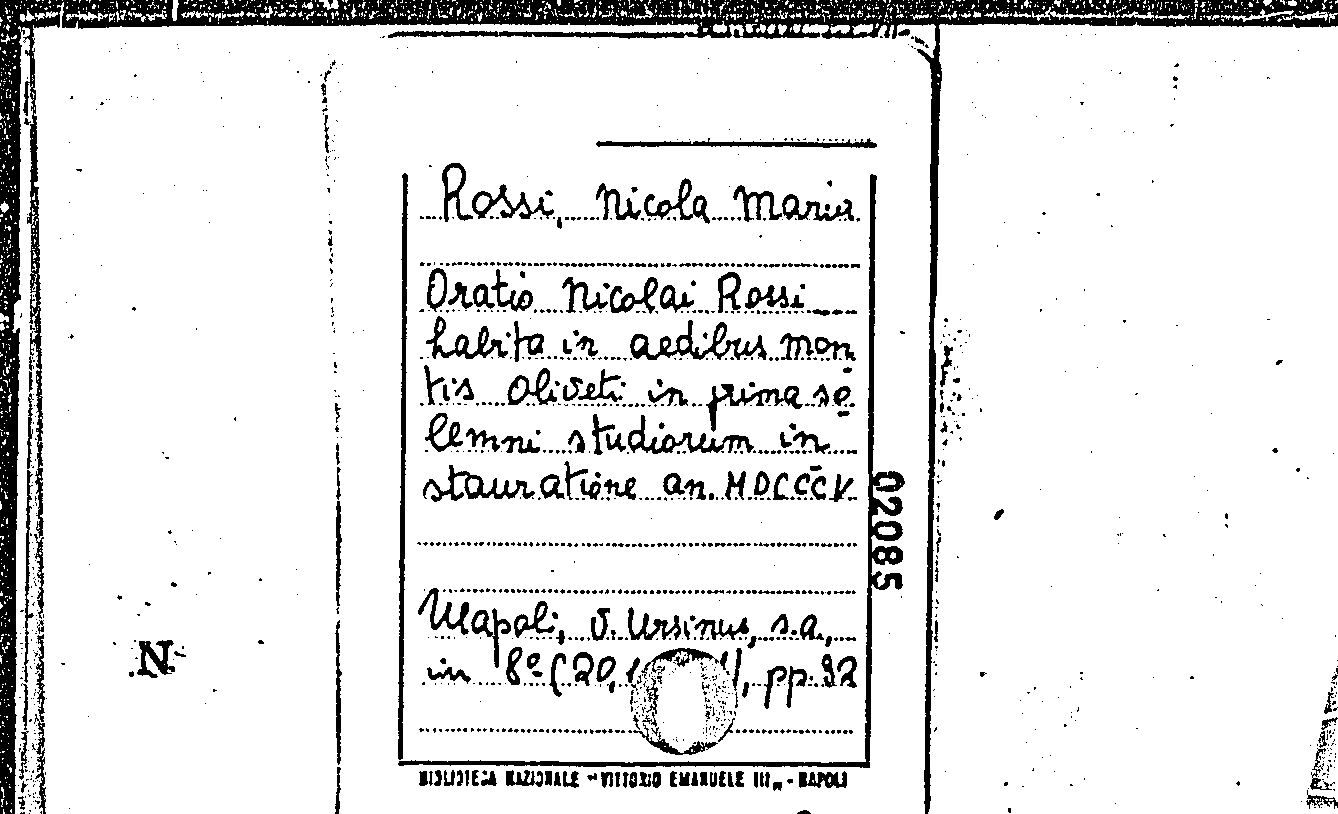 Rossi, Nicola Maria
Oratio Nicolai Rossi
habita in aedibus mon
tis Oliveti in prima so
lemni studiorum in
stauratione an. MDCCCV
Napoli, V. Ursinus, s.a.,
in 8º (20, pp. 92
BIBLIOTECA NAZIONALE "VITTORIO EMANUELE III" - NAPOLI
02085
N